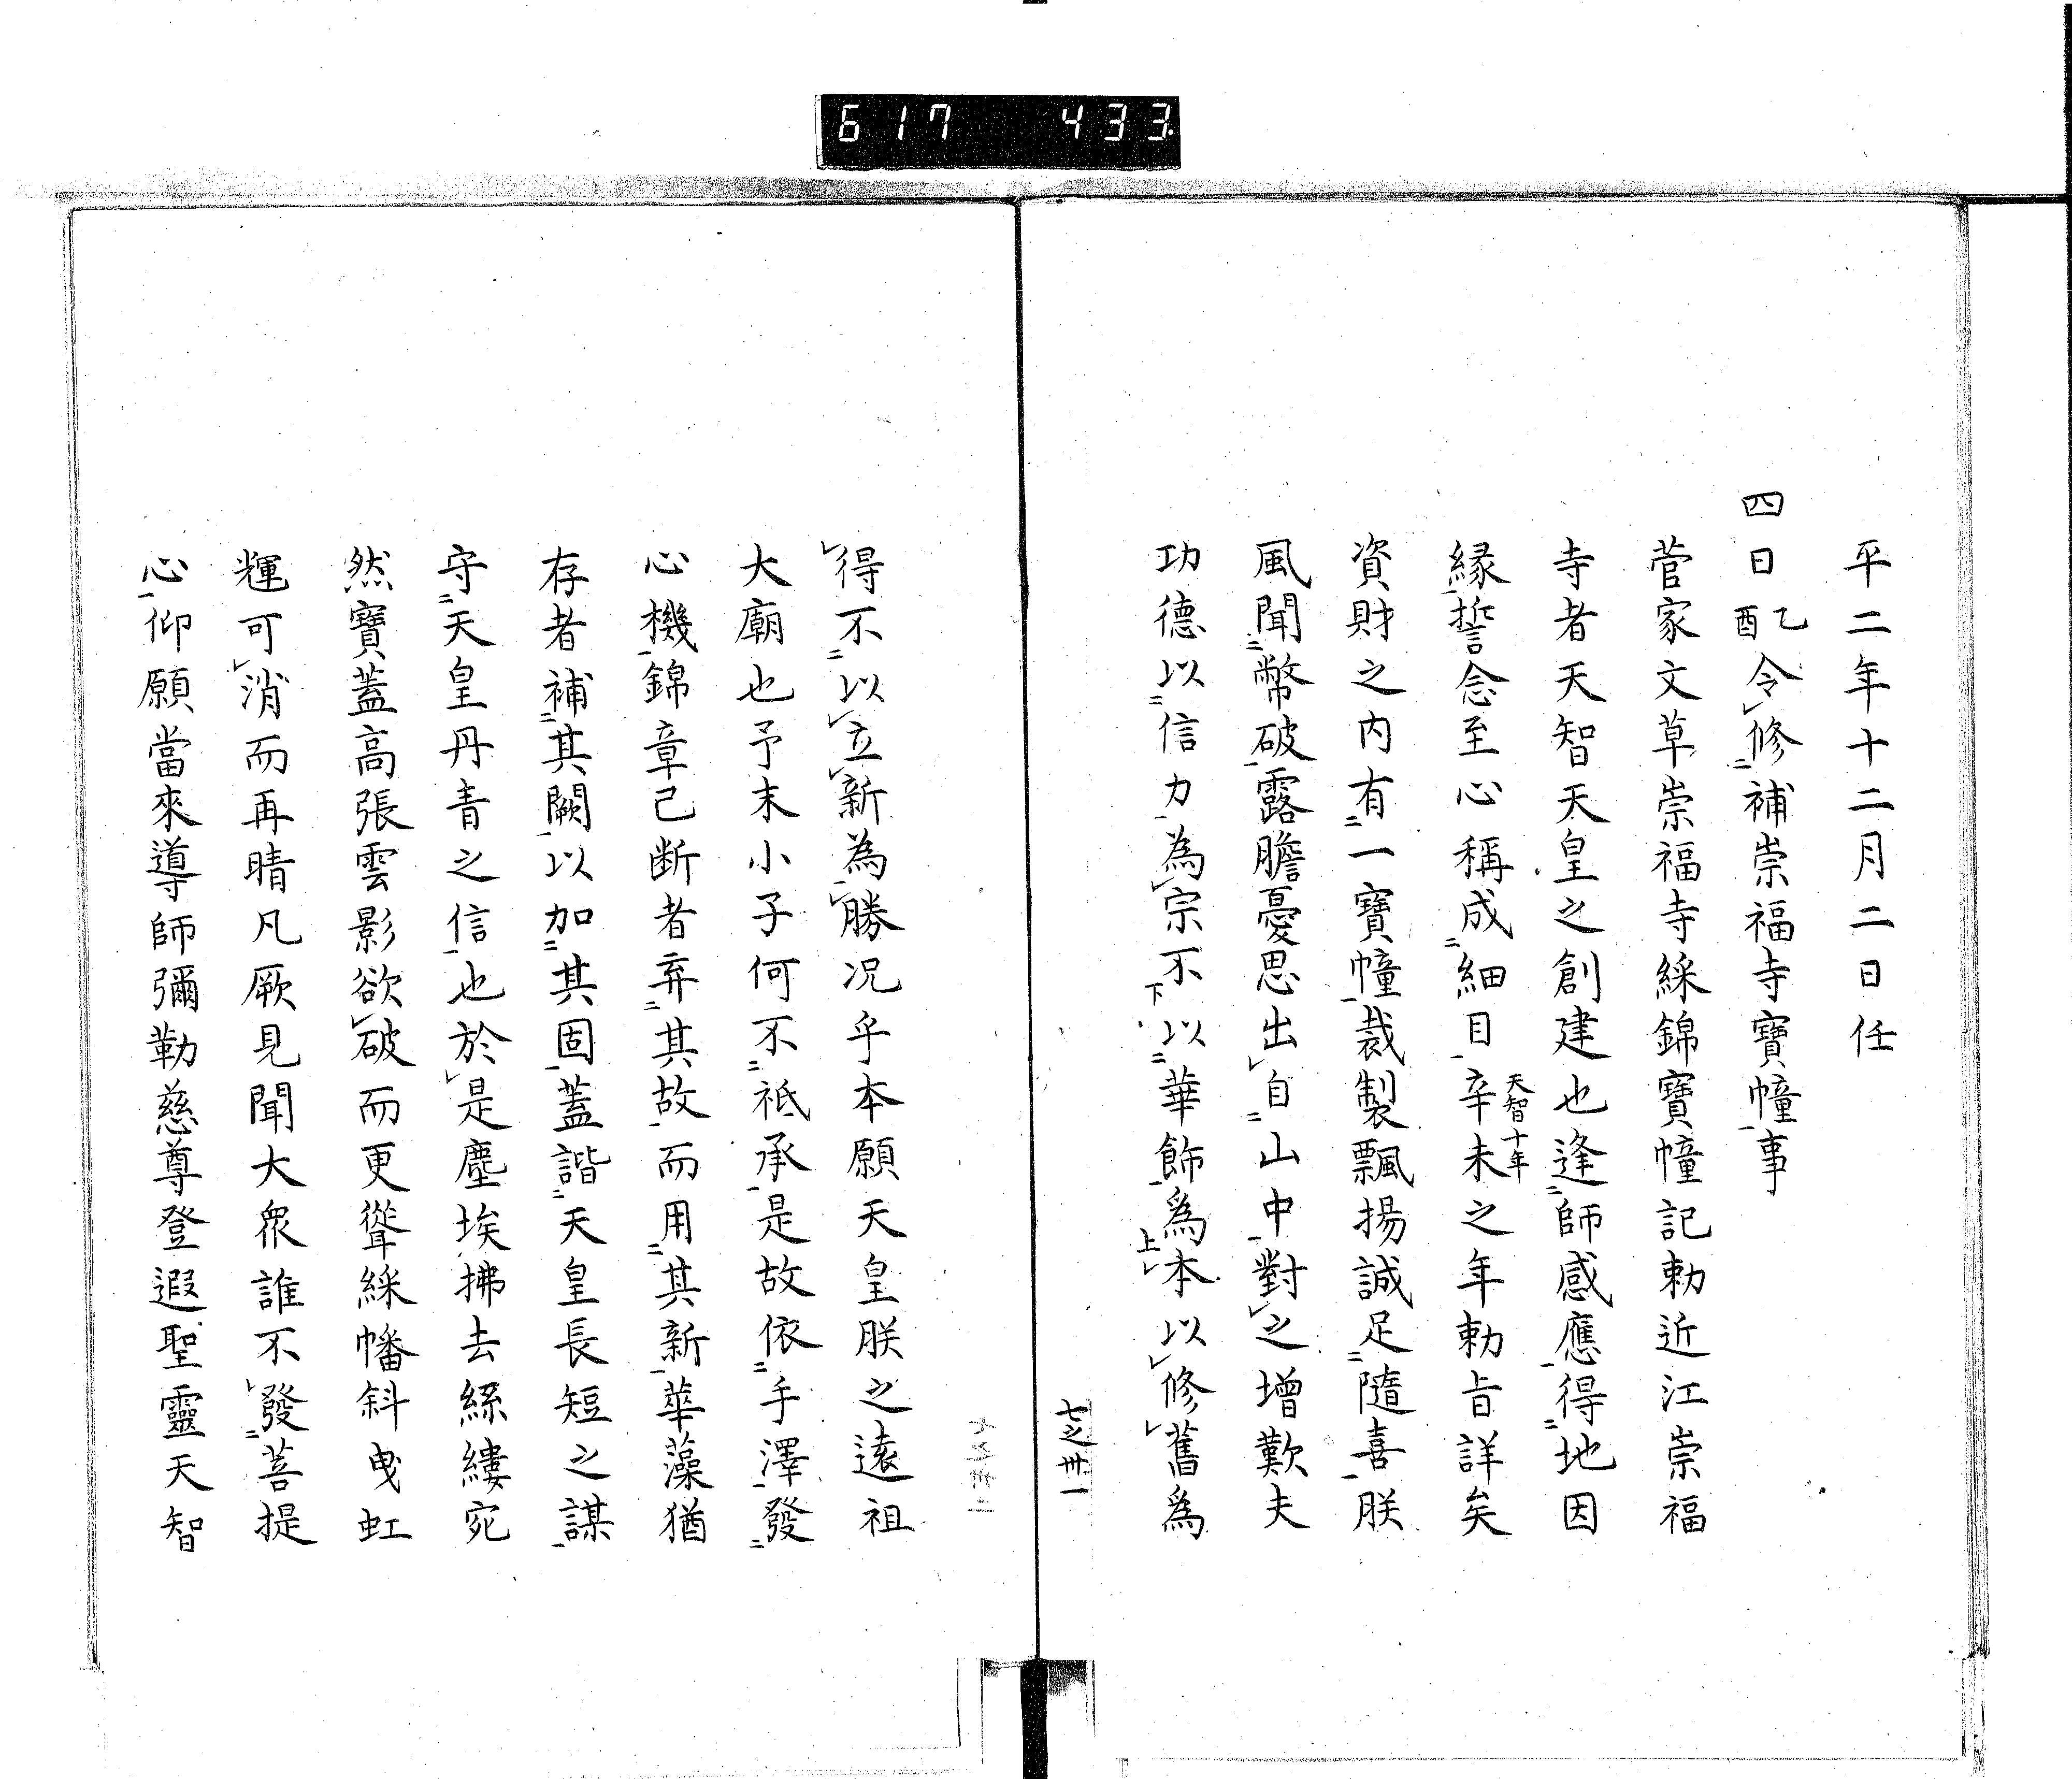 617 433
平二年十二月二日任
四日乙酉令修補崇福寺寶幢事
菅家文草崇福寺綵錦寶幢記勅近江崇福
寺者天智天皇之創建也逢師感應得地因
縁誓念至心稱成細目辛未之年勅旨詳矣
天智十年
資財之内有一寶幢裁製飄揚誠足隨喜朕
風聞幣破露膽憂思出自山中對之增歎夫
功德以信力為宗不以華飾爲本以修舊爲
七之卅一
得不以立新為勝況乎本願天皇朕之遠祖
大廟也予末小子何不祗承是故依手澤發
心機錦章己断者弃其故而用其新華藻猶
存者補其闕以加其固蓋諧天皇長短之謀
守天皇丹青之信也於是塵埃拂去絲縷宛
然寶蓋高張雲影欲破而更聳綵幡斜曳虹
輝可消而再晴凡厥見聞大衆誰不發菩提
心仰願當來導師彌勒慈尊登遐聖靈天智